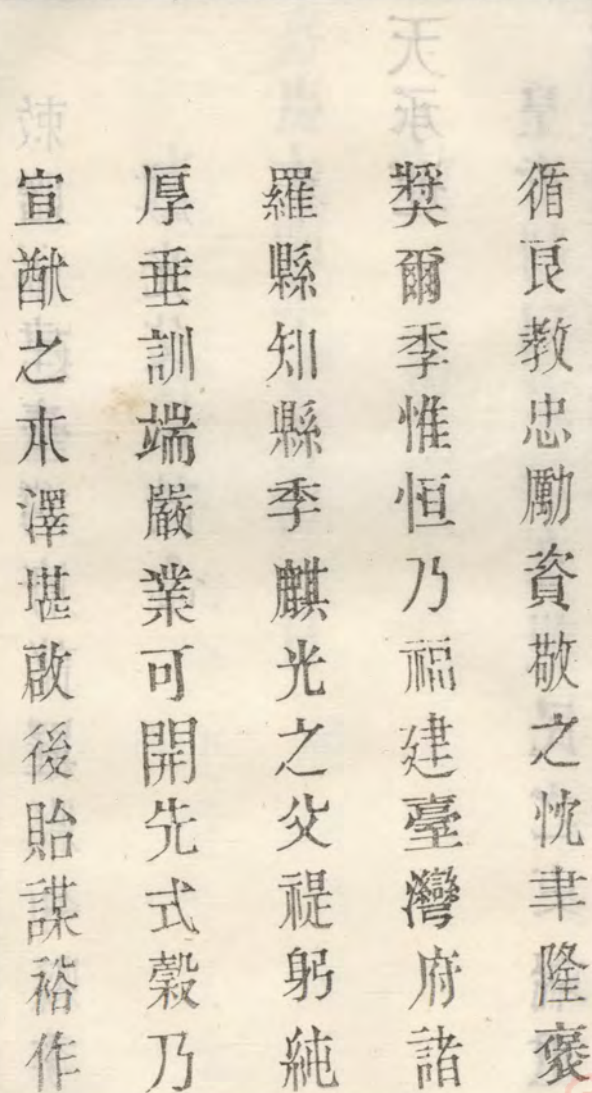 循良教忠勵資敬之忱聿隆褒
奬爾季惟恒乃福建臺灣府諸
羅縣知縣季麒光之父禔躬純
厚垂訓端嚴業可開先式穀乃
宣猷之本澤堪啟後貽謀裕作